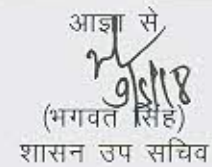 आज्ञा से
9/5/18
(भगवत सिंह)
शासन उप सचिव